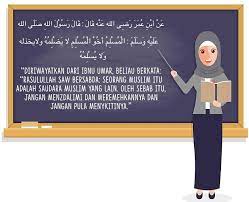 عَنِ ابْنِ عُمَرَ رَضِيَ اللهُ عَنْهُ قَالَ : قَالَ رَسُوْلُ اللهِ صَلَّى اللهُ
عَلَيْهِ وَسَلَّمَ : اَلْمُسْلِمُ أَخُو الْمُسْلِمِ لَا يَظْلِمُهُ وَلَايَخْذُلُهُ
وَلَا يُسْلِمُهُ
"DIRIWAYATKAN DARI IBNU UMAR, BELIAU BERKATA:
"RASULULLAH SAW BERSABDA: SEORANG MUSLIM ITU
ADALAH SAUDARA MUSLIM YANG LAIN. OLEH SEBAB ITU,
JANGAN MENZDALIMI DAN MEREMEHKANNYA DAN
JANGAN PULA MENYKITINYA."